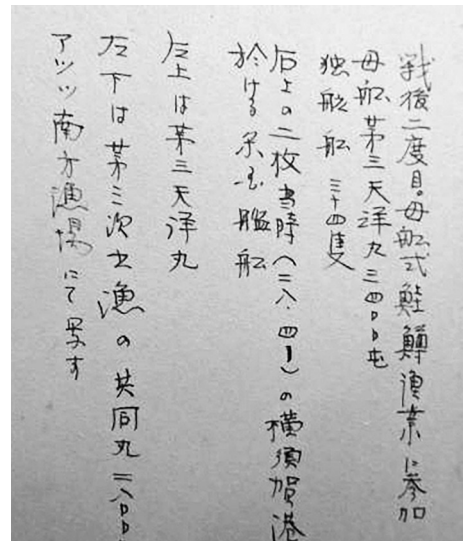 戦後二度目。母船式鮭鱒漁業に参加
母船第三天洋丸三四〇〇屯
独航船 三十四隻
右上の二枚当時(二八・四―)の横須賀港
於ける 艦船
左上は第三天洋丸
左下は第三次出漁の共同丸二八〇〇
アツツ南方漁場にて写す